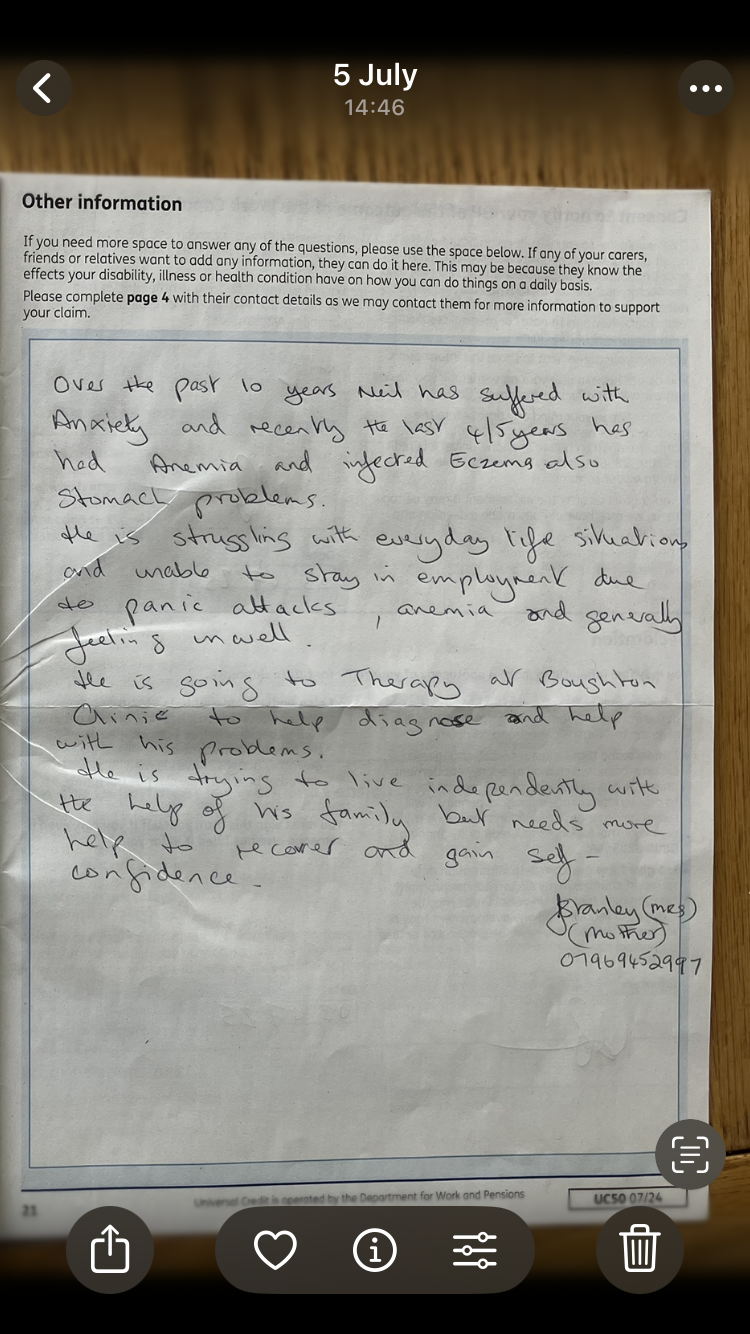 5 July
14:46
Other information
If you need more space to answer any of the questions, please use the space below. If any of your carers,
friends or relatives want to add any information, they can do it here. This may be because they know the
effects your disability, illness or health condition have on how you can do things on a daily basis.
Please complete page 4 with their contact details as we may contact them for more information to support
your claim.
Over the past 10 years Neil has suffered with
Anxiety and recently the last 4/5 years has
had Anemia and infected Eczema also
Stomach problems.
He is struggling with everyday life situations
and unable to stay in employment due
to panic attacks, anemia and generally
feeling unwell.
He is going to Therapy at Boughton
Clinic to help diagnose and help
with his problems.
He is trying to live independently with
the help of his family but needs more
help to recover and gain self-
confidence.
(Mrs)
(Mother)
07969452997
21
Universal Credit is operated by the Department for Work and Pensions
UC50 07/24